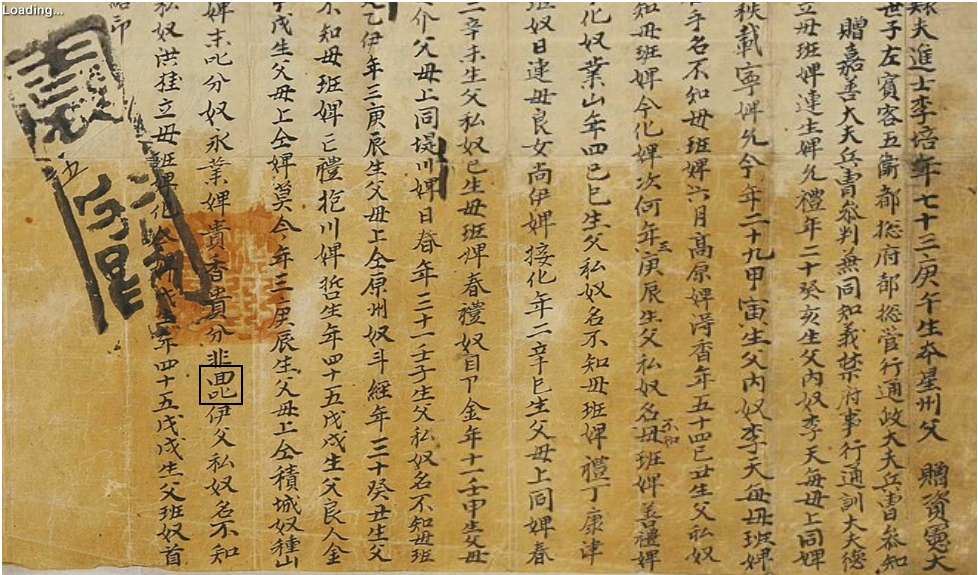 Loading...
夫進士李培年七十三庚午生本星州父 贈資憲大
世子左賓客五衛都摠府都摠管行通政大夫兵曹參知
贈嘉善大夫兵曹參判兼同知義禁府事行通訓大夫
立母班婢連生婢允禮年二十癸亥生父內奴李天每母上同婢
秩載寧婢允今年二十九甲寅生父內奴李天每母班婢
名不知母班婢六月高原婢淂香年五十四己丑生父私奴
知母班婢今化婢次何年三庚辰生父私奴名不知母班婢善禮婢
化奴業山年四己巳生父私奴名不知母班婢禮丁康津
奴日連母良女尚伊婢接化年二辛巳生父母上同婢春
二辛未生父私奴巳生母班婢春禮奴自卩金年十一壬申生父母
介父母上同堤川婢日春年三十一壬子生父私奴名不知母班
乙伊年三庚辰生父母上仝原州奴斗經年三十癸丑生父
不知母班婢亡禮抱川婢哲生年四十五戊戌生父良人金
戌生父母上仝婢莫今年三庚辰生父母上仝積城奴種山
婢末叱分奴永業婢貴香貴分非回叱伊父私奴名不知
私奴洪挂立母班婢化年四十五戊戌生父班奴首
印